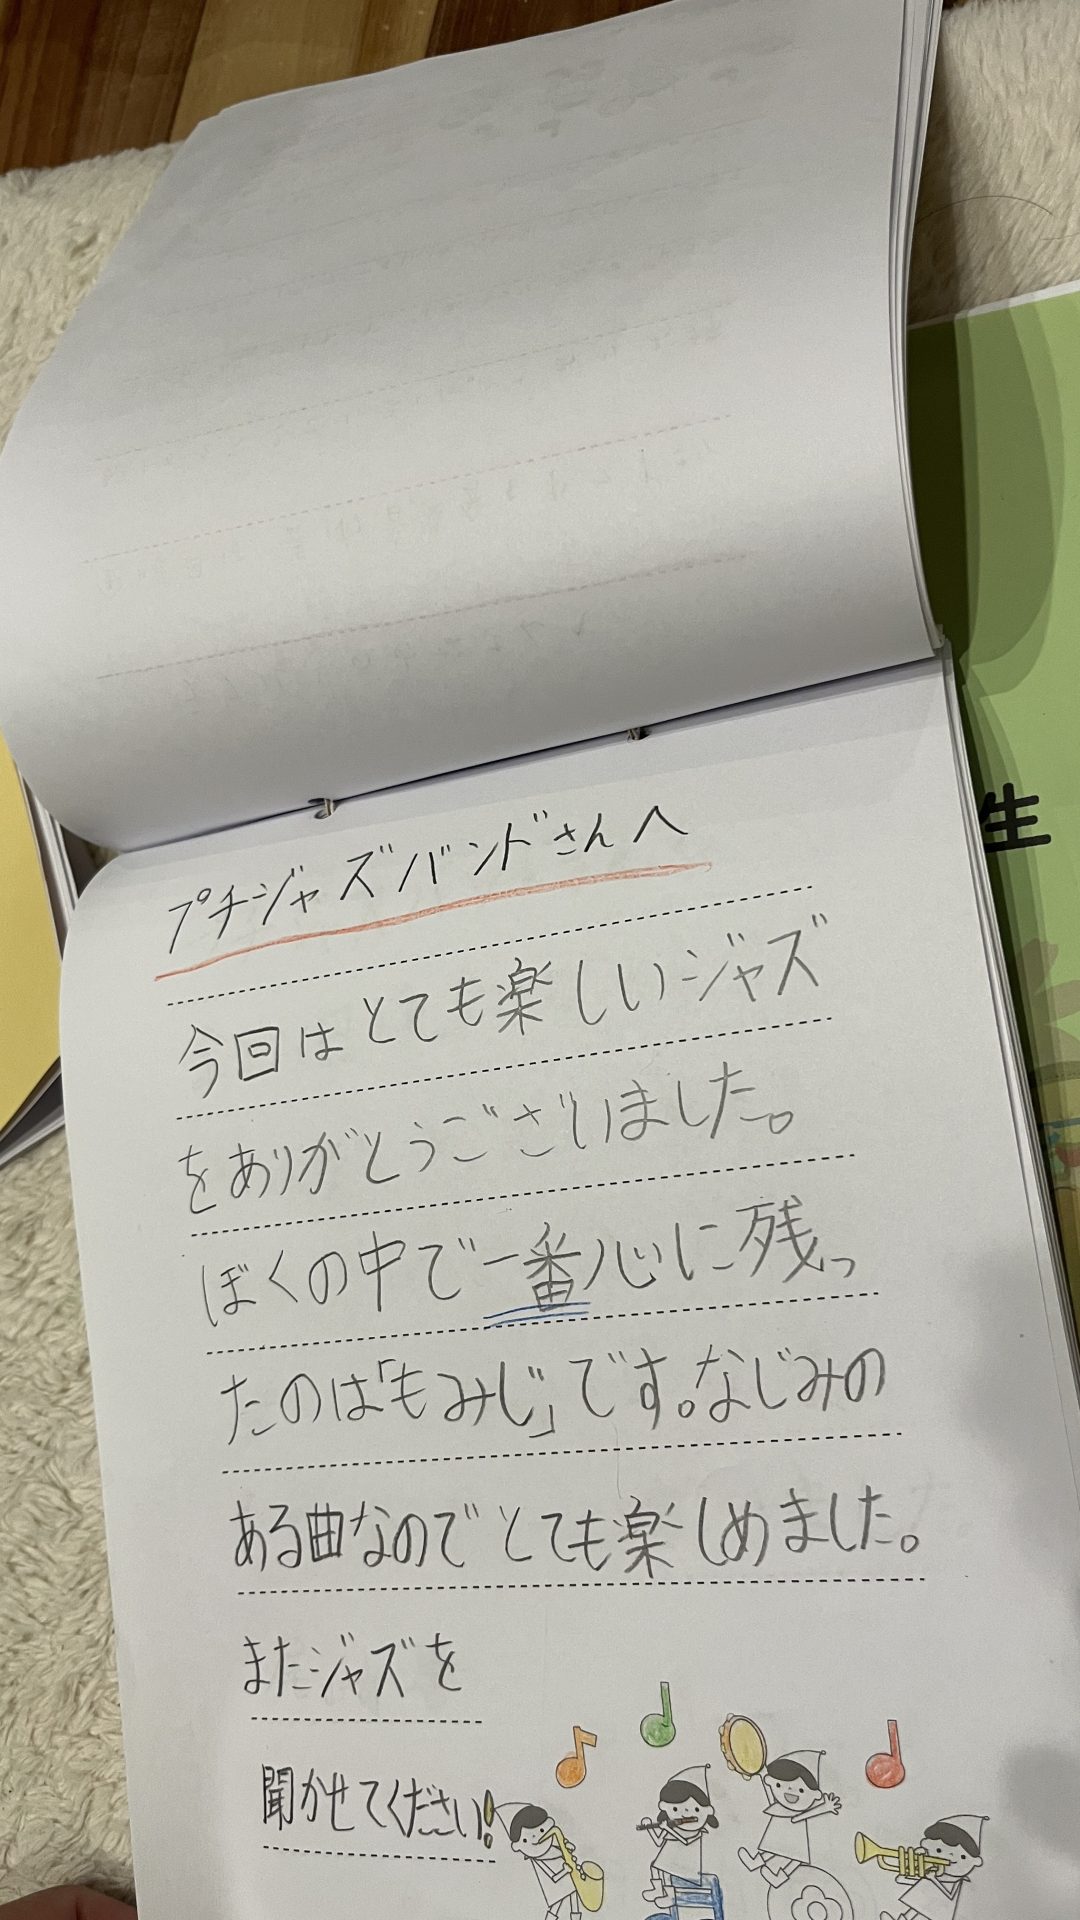 プチジャズバンドさんへ
今回はとても楽しいジャズ
をありがとうございました。
ぼくの中で一番心に残っ
たのは「もみじ」です。なじみの
ある曲なのでとても楽しめました。
またジャズを
聞かせてください!
生